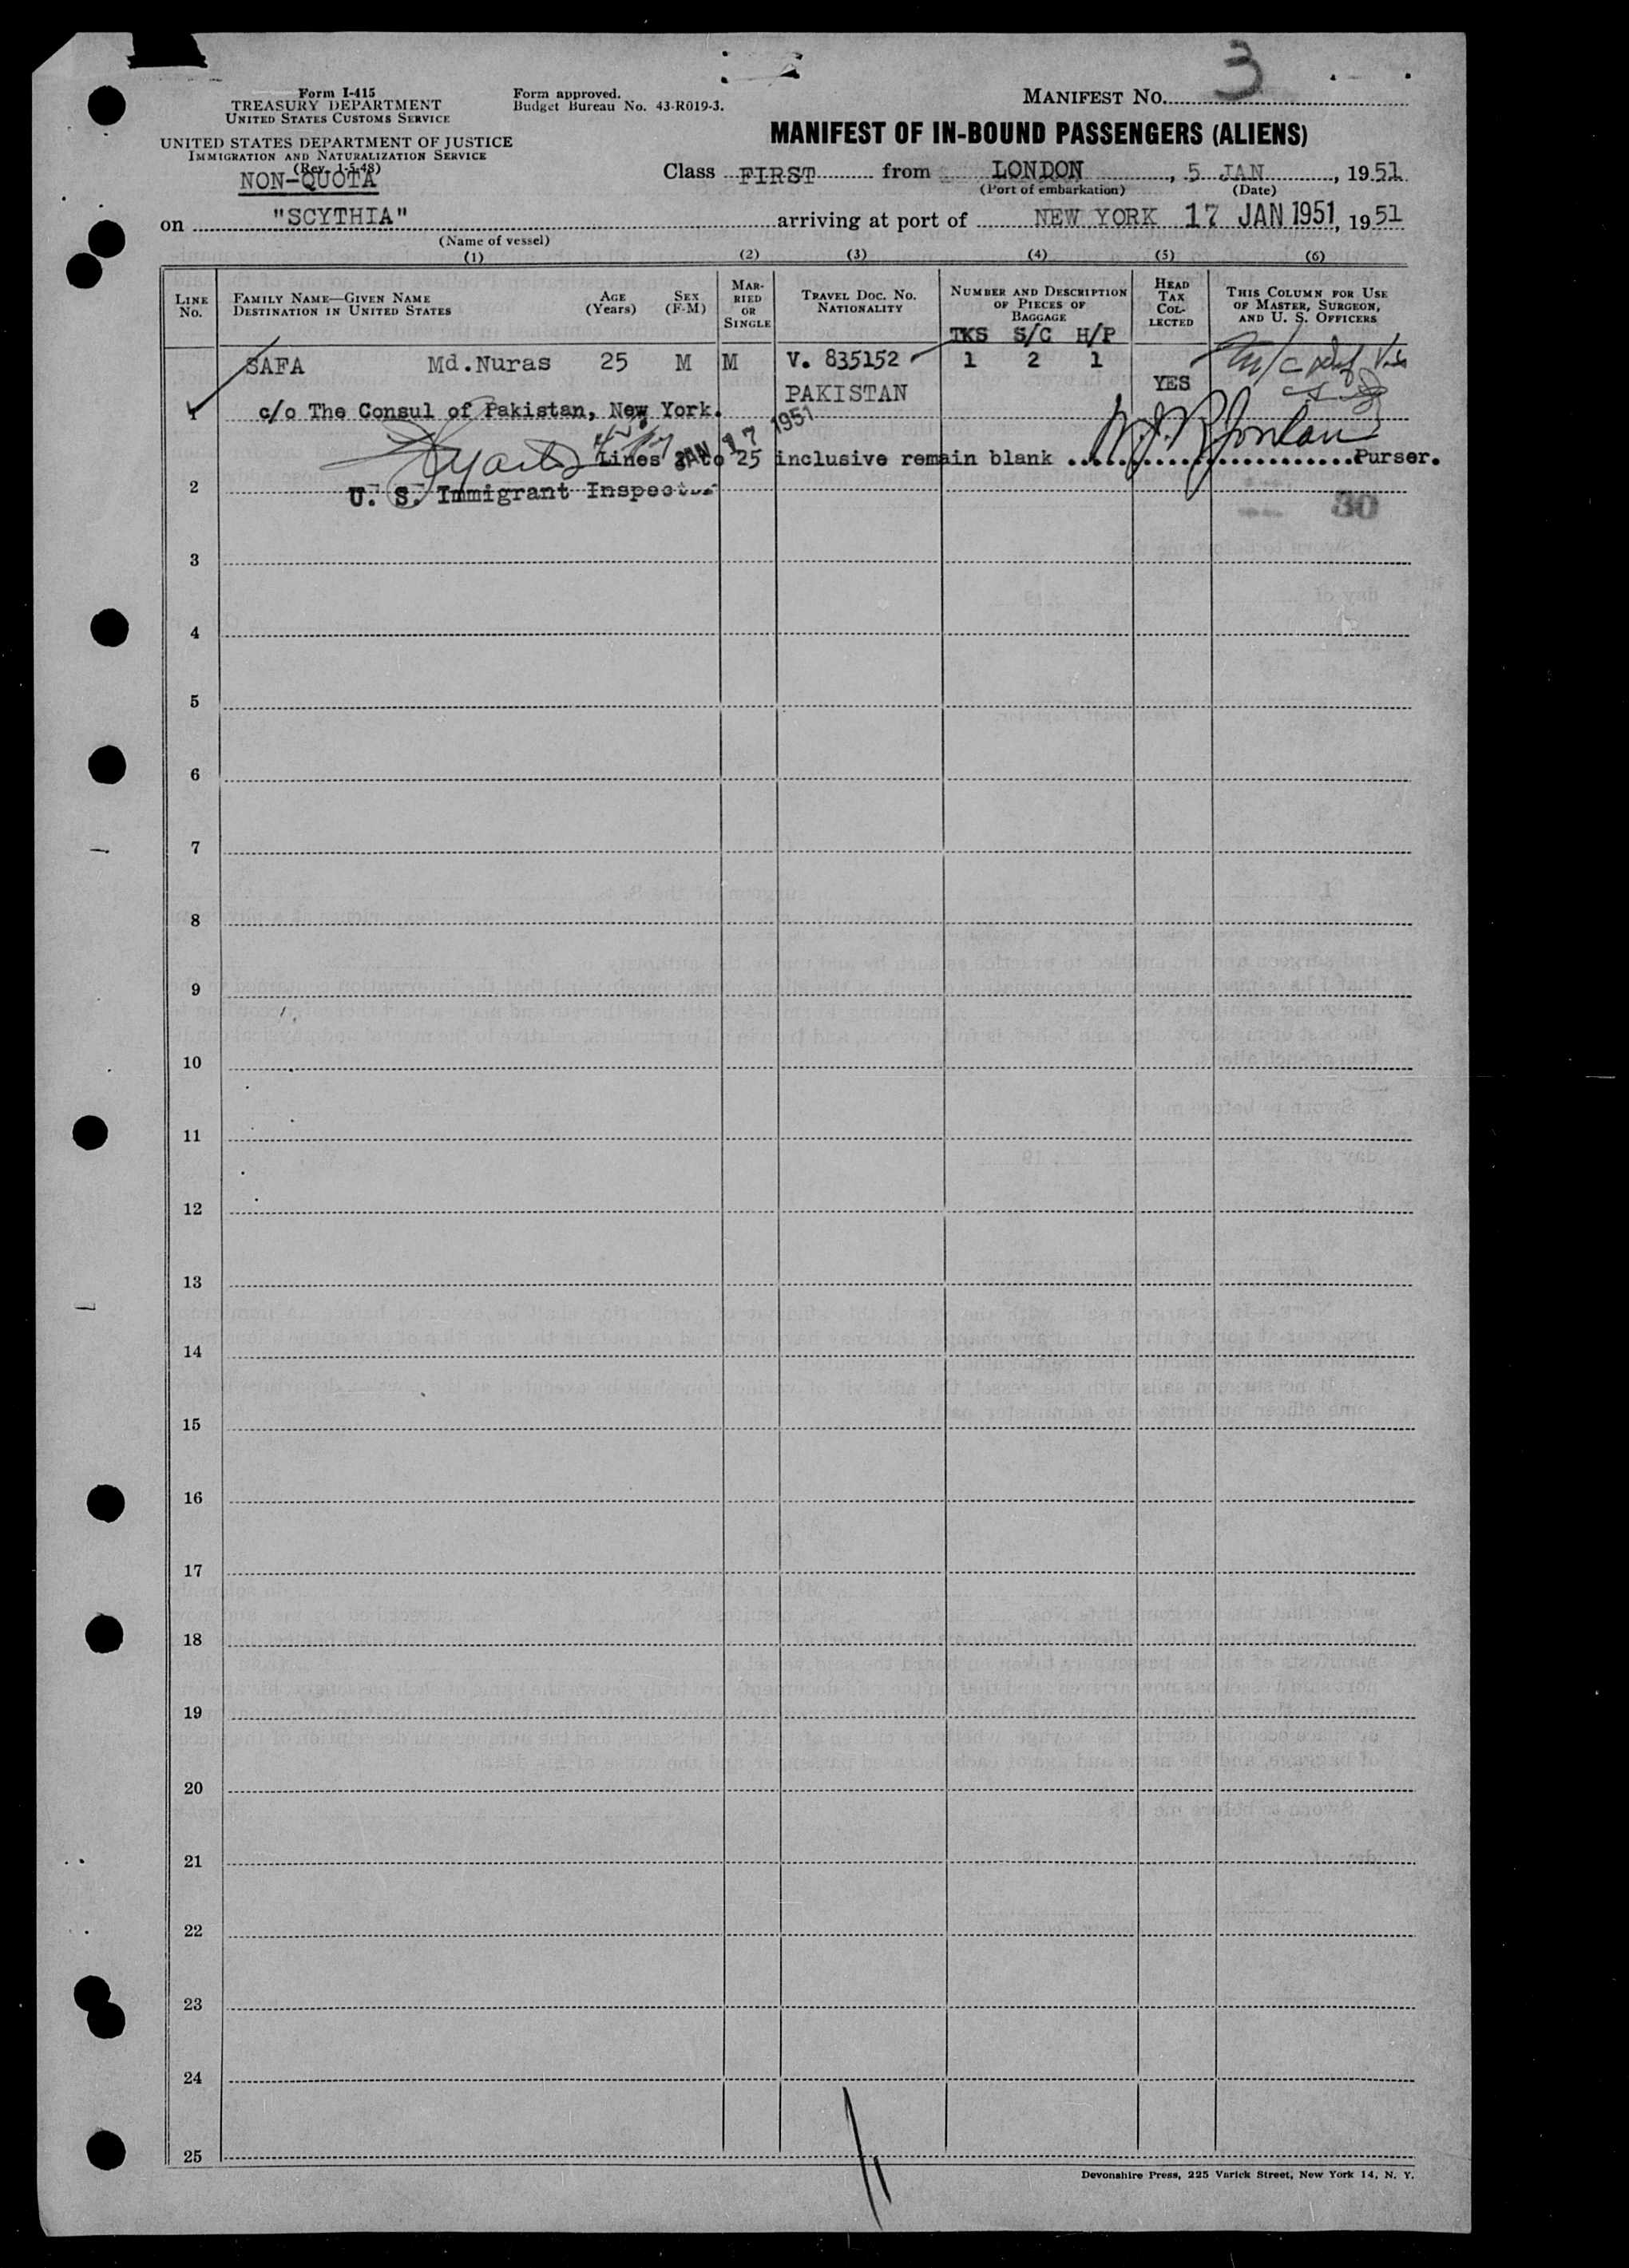 3
Form I-415
TREASURY DEPARTMENT
UNITED STATES CUSTOMS SERVICE
UNITED STATES DEPARTMENT OF JUSTICE
IMMIGRATION AND NATURALIZATION SERVICE
(Rev. 1-5-48)
NON-QUOTA
Form approved.
Budget Bureau No. 43-R019-3.
MANIFEST No.
MANIFEST OF IN-BOUND PASSENGERS (ALIENS)
Class FIRST from LONDON, 5 JAN, 1951
(Port of embarkation) (Date)
on "SCYTHIA" arriving at port of NEW YORK 17 JAN 1951, 1951
(Name of vessel)
(1) (2) (3) (4) (5) (6)
LINE No.
FAMILY NAME—GIVEN NAME
DESTINATION IN UNITED STATES
AGE (Years)
SEX (F-M)
MARRIED OR SINGLE
TRAVEL DOC. No. NATIONALITY
NUMBER AND DESCRIPTION OF PIECES OF BAGGAGE
TKS S/C H/P
HEAD TAX COLLECTED
THIS COLUMN FOR USE OF MASTER, SURGEON, AND U. S. OFFICERS
SAFA Md.Nuras 25 M M V. 835152 1 2 1
PAKISTAN YES
1 c/o The Consul of Pakistan, New York.
JAN 17 1951
Lines 2 to 25 inclusive remain blank Purser.
2 U. S. Immigrant Inspector
30
3
4
5
6
7
8
9
10
11
12
13
14
15
16
17
18
19
20
21
22
23
24
25
Devonshire Press, 225 Varick Street, New York 14, N. Y.